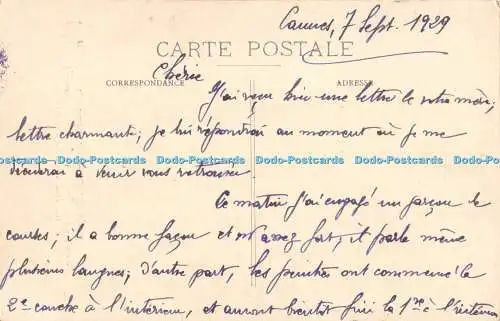 Cannes, 7 Sept. 1929
CARTE POSTALE
CORRESPONDANCE
ADRESSE
Chérie
J'ai reçu hier une lettre de votre mère,
lettre charmante; je lui répondrai au moment où je me
à venir vous retrouver
Dodo-Postcards Dodo-Postcards Dodo-Postcards Dodo-Postcards Dodo-Postcards
Ce matin j'ai engagé un garçon de
courses; il a bonne façon et est assez fort, il parle même
plusieurs langues; d'autre part, les peintres ont commencé la
2e couche à l'intérieur, et auront bientôt fini la 1re à l'extérieur